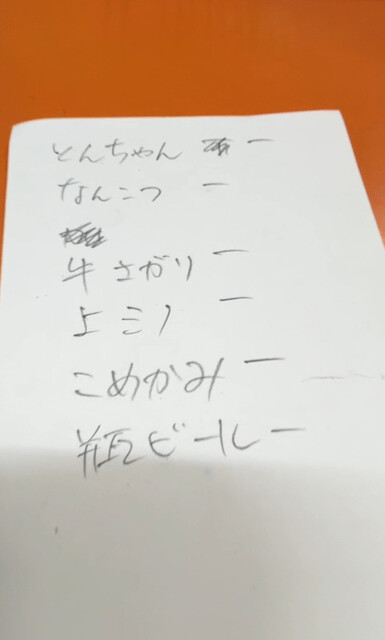 とんちゃん 一
なんこつ 一
牛さがり 一
上ミノ 一
こめかみ 一
瓶ビール 一